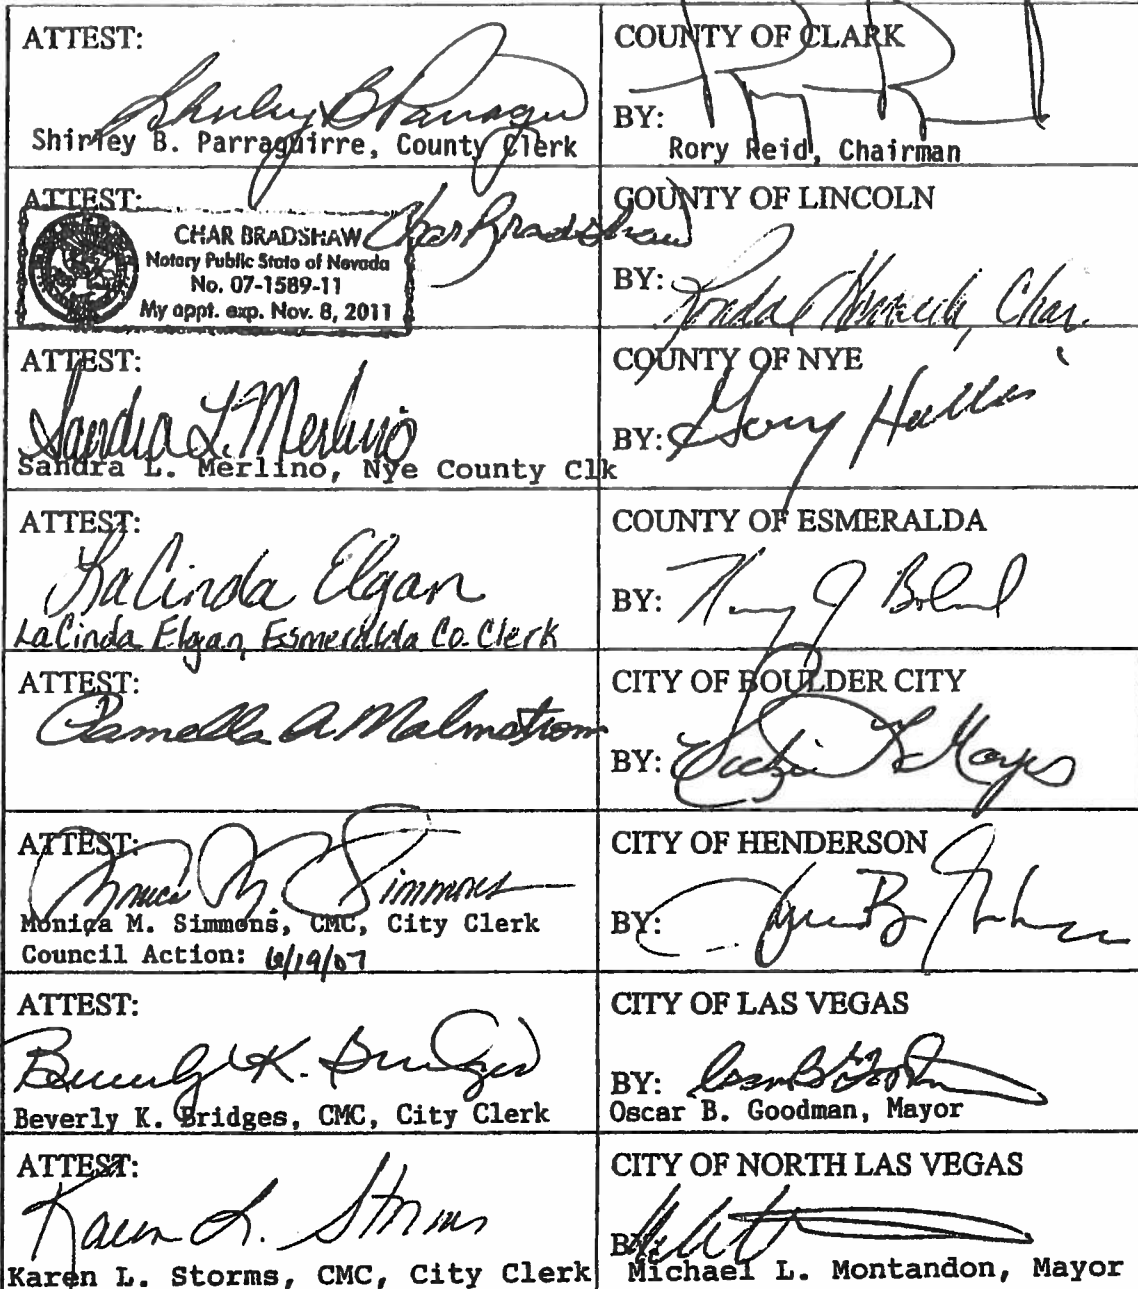 ATTEST:
Shirley B Parraguirre
Shirley B. Parraguirre, County Clerk
COUNTY OF CLARK
BY:
Rory Reid, Chairman
ATTEST:
Char Bradshaw
CHAR BRADSHAW
Notary Public State of Nevada
No. 07-1589-11
My appt. exp. Nov. 8, 2011
COUNTY OF LINCOLN
BY: Ronda Chair.
ATTEST:
Sandra L. Merlino
Sandra L. Merlino, Nye County Clk
COUNTY OF NYE
BY: Gary Hollis
ATTEST:
LaCinda Elgan
LaCinda Elgan, Esmeralda Co. Clerk
COUNTY OF ESMERALDA
BY: J Boland
ATTEST:
Pamella A. Malmstrom
CITY OF BOULDER CITY
BY: Mayes
ATTEST:
Monica M Simmons
Monica M. Simmons, CMC, City Clerk
Council Action: 6/19/07
CITY OF HENDERSON
BY:
ATTEST:
Beverly K. Bridges
Beverly K. Bridges, CMC, City Clerk
CITY OF LAS VEGAS
BY: Oscar B Goodman
Oscar B. Goodman, Mayor
ATTEST:
Karen L. Storms
Karen L. Storms, CMC, City Clerk
CITY OF NORTH LAS VEGAS
BY:
Michael L. Montandon, Mayor